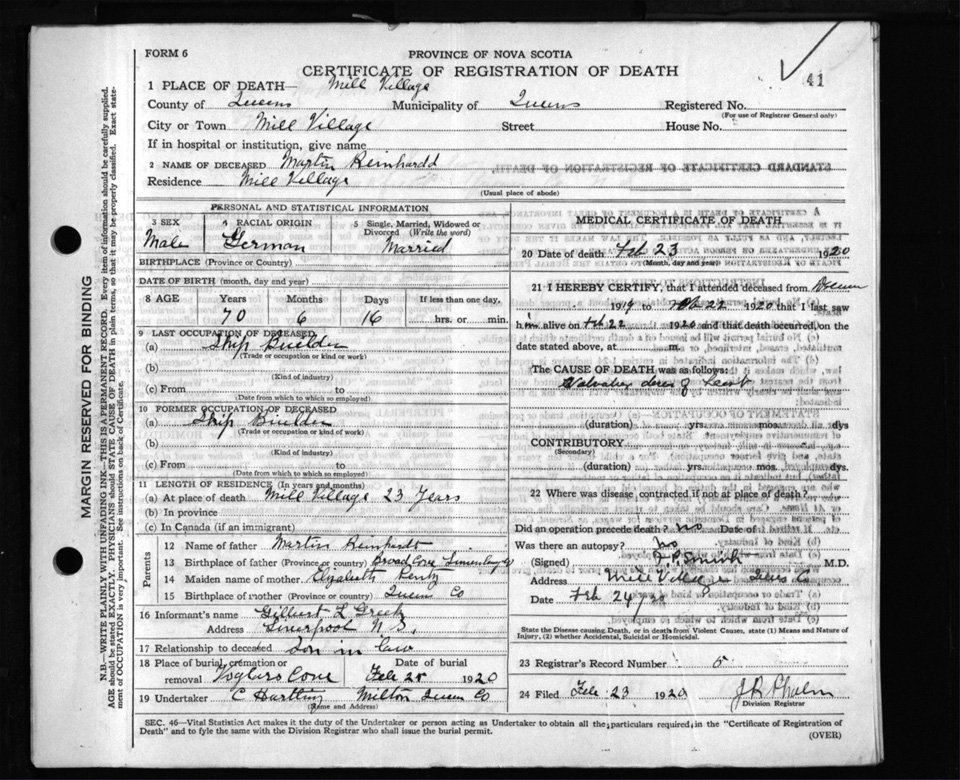 FORM 6
PROVINCE OF NOVA SCOTIA
CERTIFICATE OF REGISTRATION OF DEATH
41
1 PLACE OF DEATH— Mill Village
County of Queens Municipality of Queens Registered No.
(For use of Registrar General only)
City or Town Mill Village Street House No.
If in hospital or institution, give name
2 NAME OF DECEASED Martin Reinhardd
Residence Mill Village
(Usual place of abode)
PERSONAL AND STATISTICAL INFORMATION
3 SEX Male
4 RACIAL ORIGIN German
5 Single, Married, Widowed or Divorced (Write the word) Married
BIRTHPLACE (Province or Country)
DATE OF BIRTH (month, day and year)
8 AGE Years Months Days If less than one day,
70 6 16 hrs. or min.
9 LAST OCCUPATION OF DECEASED
(a) Ship Builder
(Trade or occupation or kind or work)
(b)
(Kind of industry)
(c) From to
(Date from which to which so employed)
10 FORMER OCCUPATION OF DECEASED
(a) Ship Builder
(Trade or occupation or kind of work)
(b)
(Kind of industry)
(c) From to
(Date from which to which so employed)
11 LENGTH OF RESIDENCE (In years and months)
(a) At place of death Mill Village 23 Years
(b) In province
(c) In Canada (if an immigrant)
Parents
12 Name of father Martin Reinhardt
13 Birthplace of father (Province or Country) Broad Cove Lunenburg Co
14 Maiden name of mother Elizabeth
15 Birthplace of mother (Province or Country) Queens Co
16 Informant's name Gilbert L
Address Liverpool N.S.
17 Relationship to deceased Son in law
18 Place of burial, cremation or removal Voglers Cove Date of burial Feb 25 1920
19 Undertaker C Hartling Milton Queens Co
(Name and Address)
MEDICAL CERTIFICATE OF DEATH
20 Date of death Feb 23 1920
(Month, day and year)
21 I HEREBY CERTIFY, that I attended deceased from
1919 to Feb 22 1920 that I last saw
him alive on Feb 22 1920 and that death occurred, on the
date stated above, at m.
The CAUSE OF DEATH was as follows:
Valvular of heart
(duration) yrs. mos. dys
CONTRIBUTORY
(Secondary)
(duration) yrs. mos. dys.
22 Where was disease contracted if not at place of death?
Did an operation precede death? No Date of
Was there an autopsy? No
(Signed) Smith M.D.
Address Mill Village Queens Co
Date Feb 24
State the Disease causing Death, or in death from Violent Causes, state (1) Means and Nature of
Injury, (2) whether Accidental, Suicidal or Homicidal.
23 Registrar's Record Number 5
24 Filed Feb 23 1920
Division Registrar
SEC. 46—Vital Statistics Act makes it the duty of the Undertaker or person acting as Undertaker to obtain all the particulars required in the "Certificate of Registration of
Death" and to fyle the same with the Division Registrar who shall issue the burial permit.
(OVER)
MARGIN RESERVED FOR BINDING
N.B.—WRITE PLAINLY WITH UNFADING INK—THIS IS A PERMANENT RECORD. Every item of information should be carefully supplied.
AGE should be stated EXACTLY. PHYSICIANS should STATE CAUSE OF DEATH in plain terms, so that it may be properly classified. Exact statement of OCCUPATION is very important. See instructions on back of Certificate.